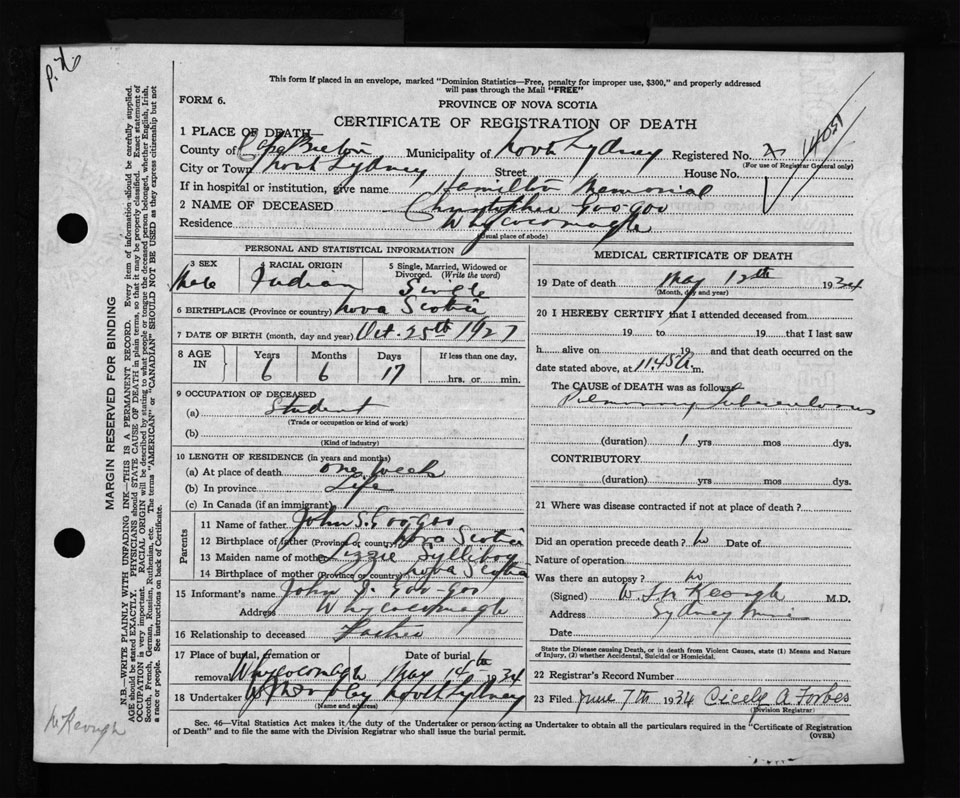 P.X.
This form if placed in an envelope, marked "Dominion Statistics—Free, penalty for improper use, $300," and properly addressed
will pass through the Mail "FREE"
FORM 6.
PROVINCE OF NOVA SCOTIA
CERTIFICATE OF REGISTRATION OF DEATH
1 PLACE OF DEATH—
County of Cape Breton Municipality of North Sydney Registered No.
(For use of Registrar General only)
City or Town North Sydney Street House No.
If in hospital or institution, give name Hamilton Memorial
2 NAME OF DECEASED Christopher Goo-goo
Residence Whycocomagh
(Usual place of abode)
PERSONAL AND STATISTICAL INFORMATION
3 SEX 4 RACIAL ORIGIN 5 Single, Married, Widowed or
Divorced. (Write the word)
Male Indian Single
6 BIRTHPLACE (Province or country) Nova Scotia
7 DATE OF BIRTH (month, day and year) Oct. 25th 1927
8 AGE IN Years Months Days If less than one day,
6 6 17 hrs. or min.
9 OCCUPATION OF DECEASED
(a) Student
(Trade or occupation or kind of work)
(b)
(Kind of industry)
10 LENGTH OF RESIDENCE (in years and months)
(a) At place of death one week
(b) In province Life
(c) In Canada (if an immigrant)
Parents
11 Name of father John S. Goo-goo
12 Birthplace of father (Province or country) Nova Scotia
13 Maiden name of mother Lizzie Sylliboy
14 Birthplace of mother (Province or country) Nova Scotia
15 Informant's name John S. Goo-Goo
Address Whycocomagh
16 Relationship to deceased Father
17 Place of burial, cremation or removal Date of burial
Whycocomagh May 14th 1934
18 Undertaker North Sydney
(Name and address)
MEDICAL CERTIFICATE OF DEATH
19 Date of death May 12th 1934
(Month, day and year)
20 I HEREBY CERTIFY that I attended deceased from
19 to 19 that I last saw
h alive on 19 and that death occurred on the
date stated above, at 11.45 a.m.
The CAUSE OF DEATH was as follows:
Pulmonary Tuberculosis
(duration) 1 yrs mos dys.
CONTRIBUTORY
(duration) yrs mos dys.
21 Where was disease contracted if not at place of death?
Did an operation precede death? no Date of
Nature of operation
Was there an autopsy? no
(Signed) Keough M.D.
Address Sydney Mines
Date
State the Disease causing Death, or in death from Violent Causes, state (1) Means and Nature
of Injury, (2) whether Accidental, Suicidal or Homicidal.
22 Registrar's Record Number
23 Filed June 7th 1934 Cicely A Forbes
(Division Registrar)
Sec. 46—Vital Statistics Act makes it the duty of the Undertaker or person acting as Undertaker to obtain all the particulars required in the "Certificate of Registration
of Death" and to file the same with the Division Registrar who shall issue the burial permit.
(OVER)
MARGIN RESERVED FOR BINDING
N.B.—WRITE PLAINLY WITH UNFADING INK—THIS IS A PERMANENT RECORD. Every item of information should be carefully supplied.
AGE should be stated EXACTLY. PHYSICIANS should STATE CAUSE OF DEATH in plain terms, so that it may be properly classified. Exact statement of
OCCUPATION is very important. RACIAL ORIGIN will be described by stating to what people or tongue the deceased person belonged, whether English, Irish,
Scotch, French, German, Russian, Ruthenian, etc. The terms "AMERICAN" or "CANADIAN" SHOULD NOT BE USED as they express citizenship but not
a race or people. See instructions on back of Certificate.
McKeough